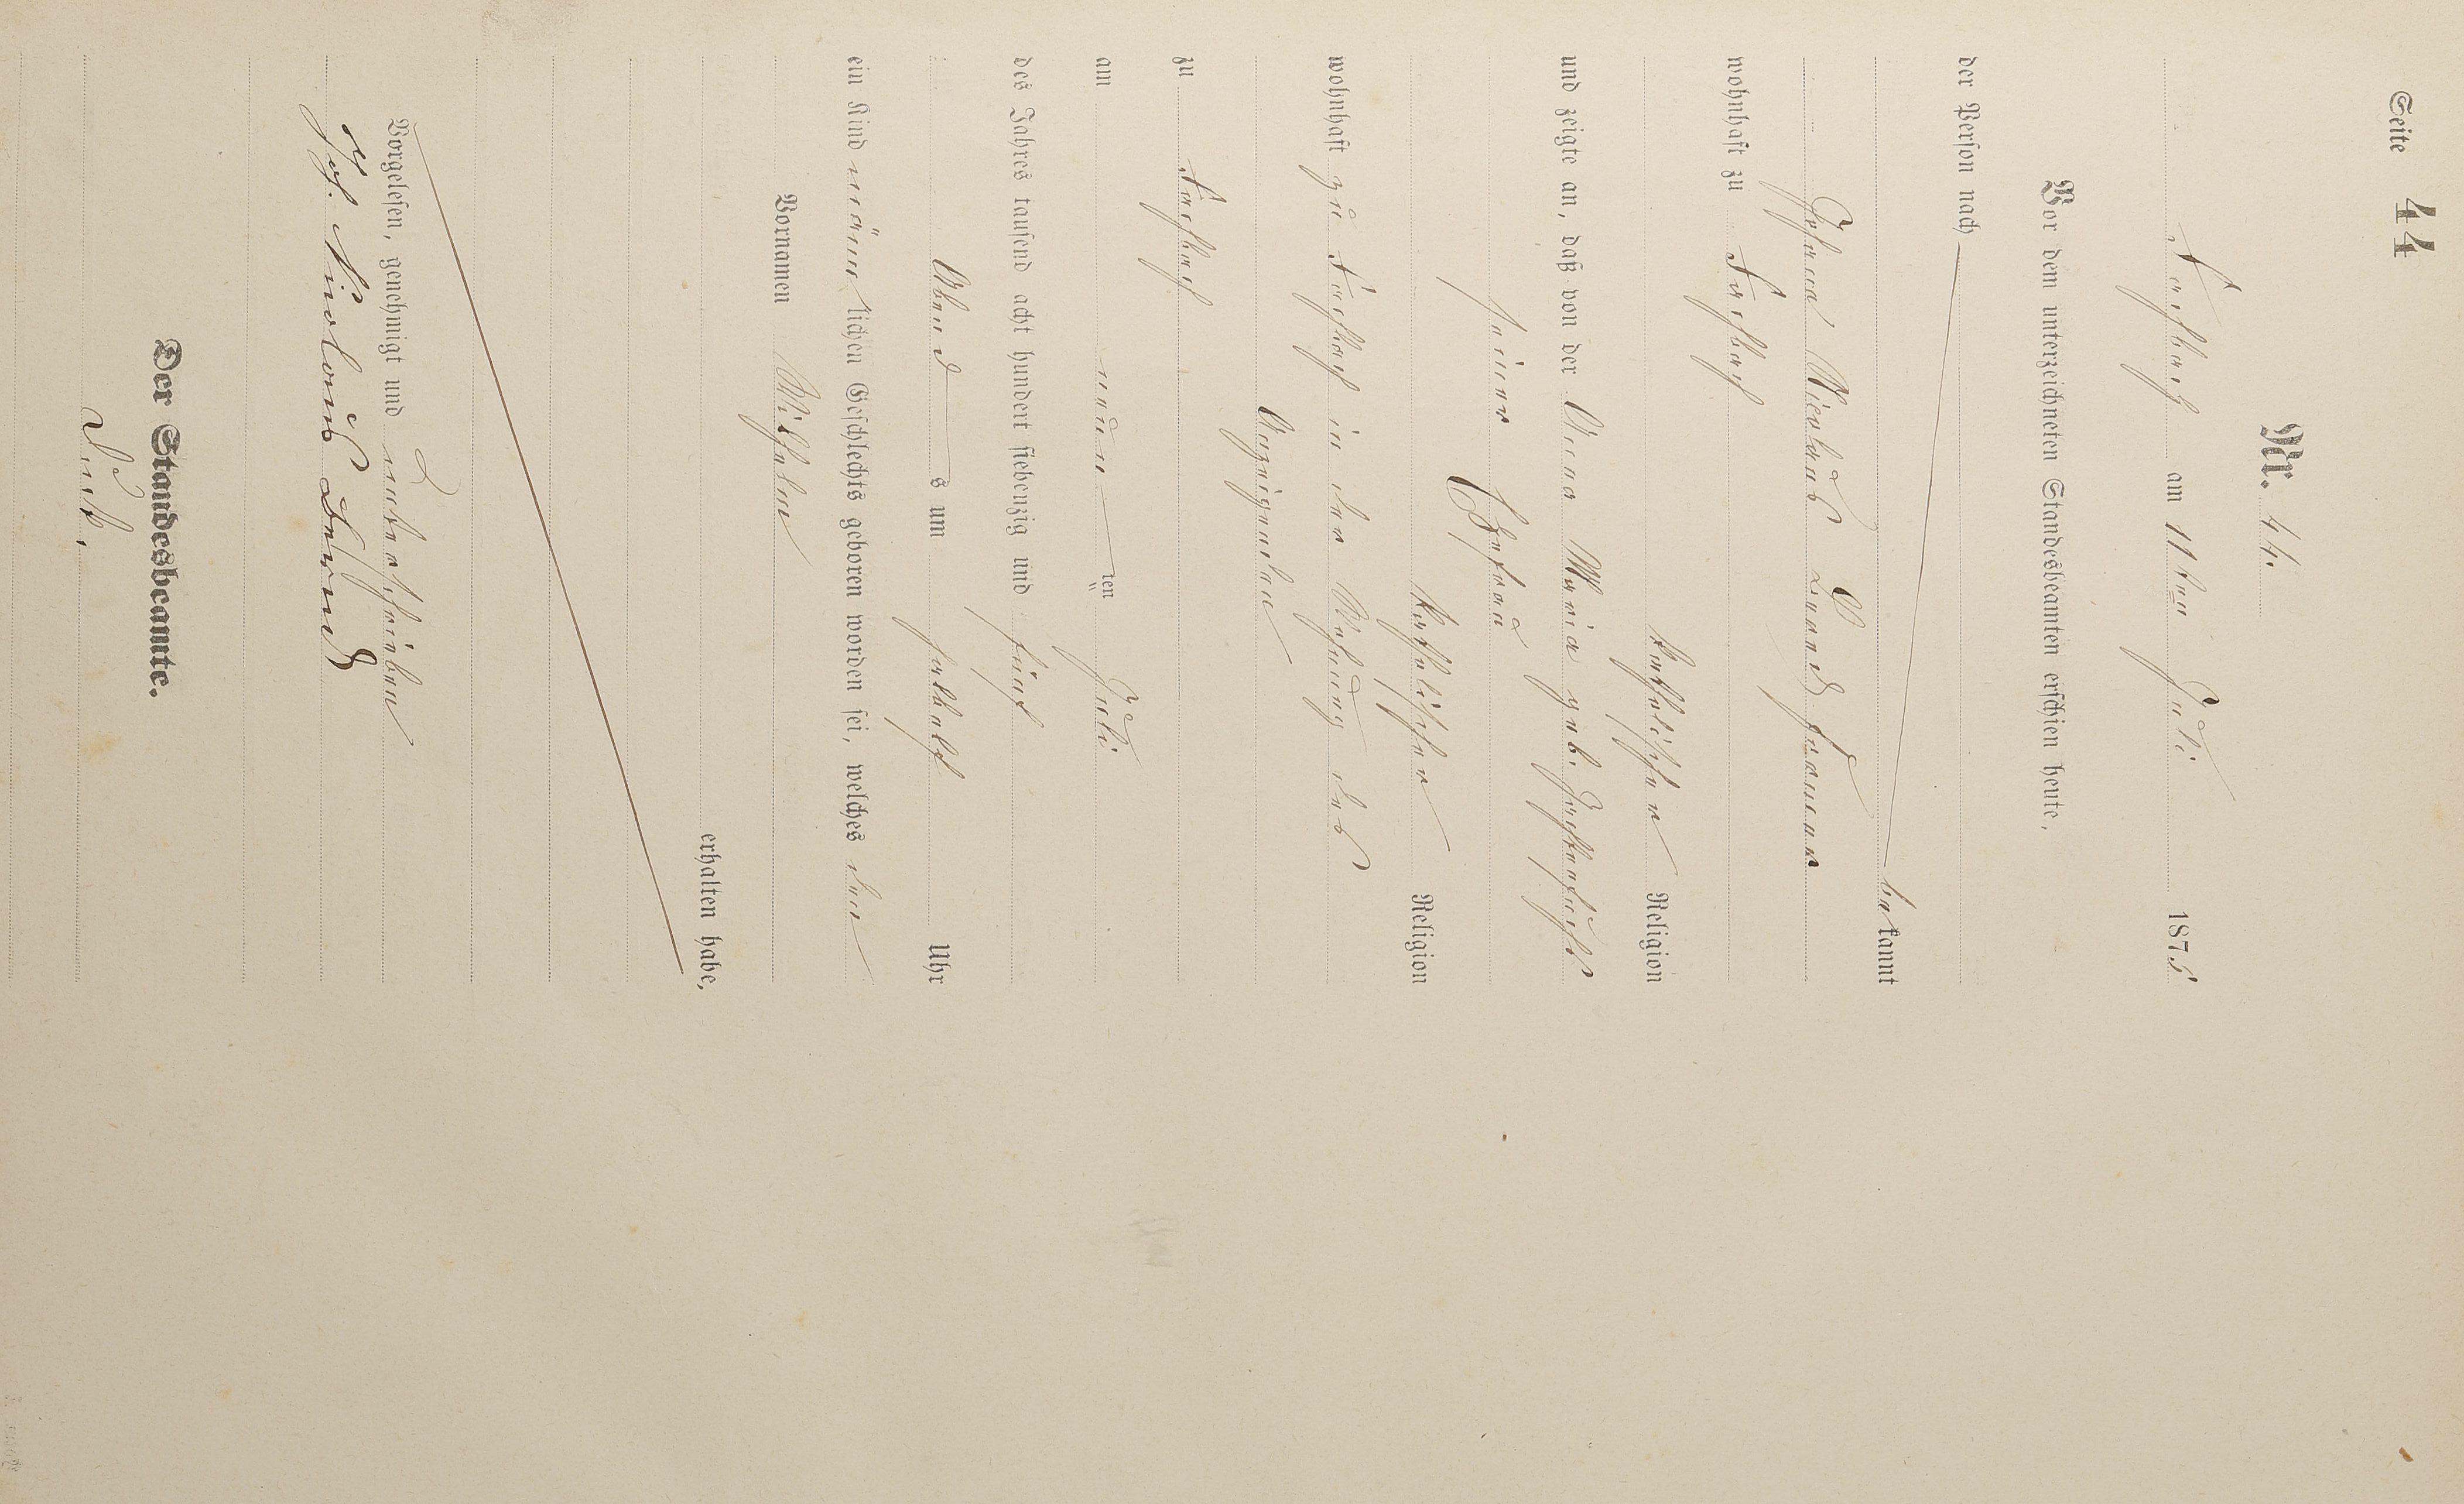 Seite 44
Nr. 44.
Fachbach am 11ten Juli 1875
Vor dem unterzeichneten Standesbeamten erschien heute,
der Person nach
bekannt
Johann Nicolaus
wohnhaft zu Fachbach
katholischer Religion
und zeigte an, daß von der Anna Maria geb.
seiner Ehefrau
katholischer Religion
wohnhaft zu Fachbach in der Wohnung des
Anzeigenden
zu Fachbach
am neun ten Juli
des Jahres tausend acht hundert siebenzig und fünf
Abend s um halbelf Uhr
ein Kind männ lichen Geschlechts geboren worden sei, welches den
Vornamen Wilhelm
erhalten habe,
Vorgelesen, genehmigt und unterschrieben
Joh. Nicolaus
Der Standesbeamte.